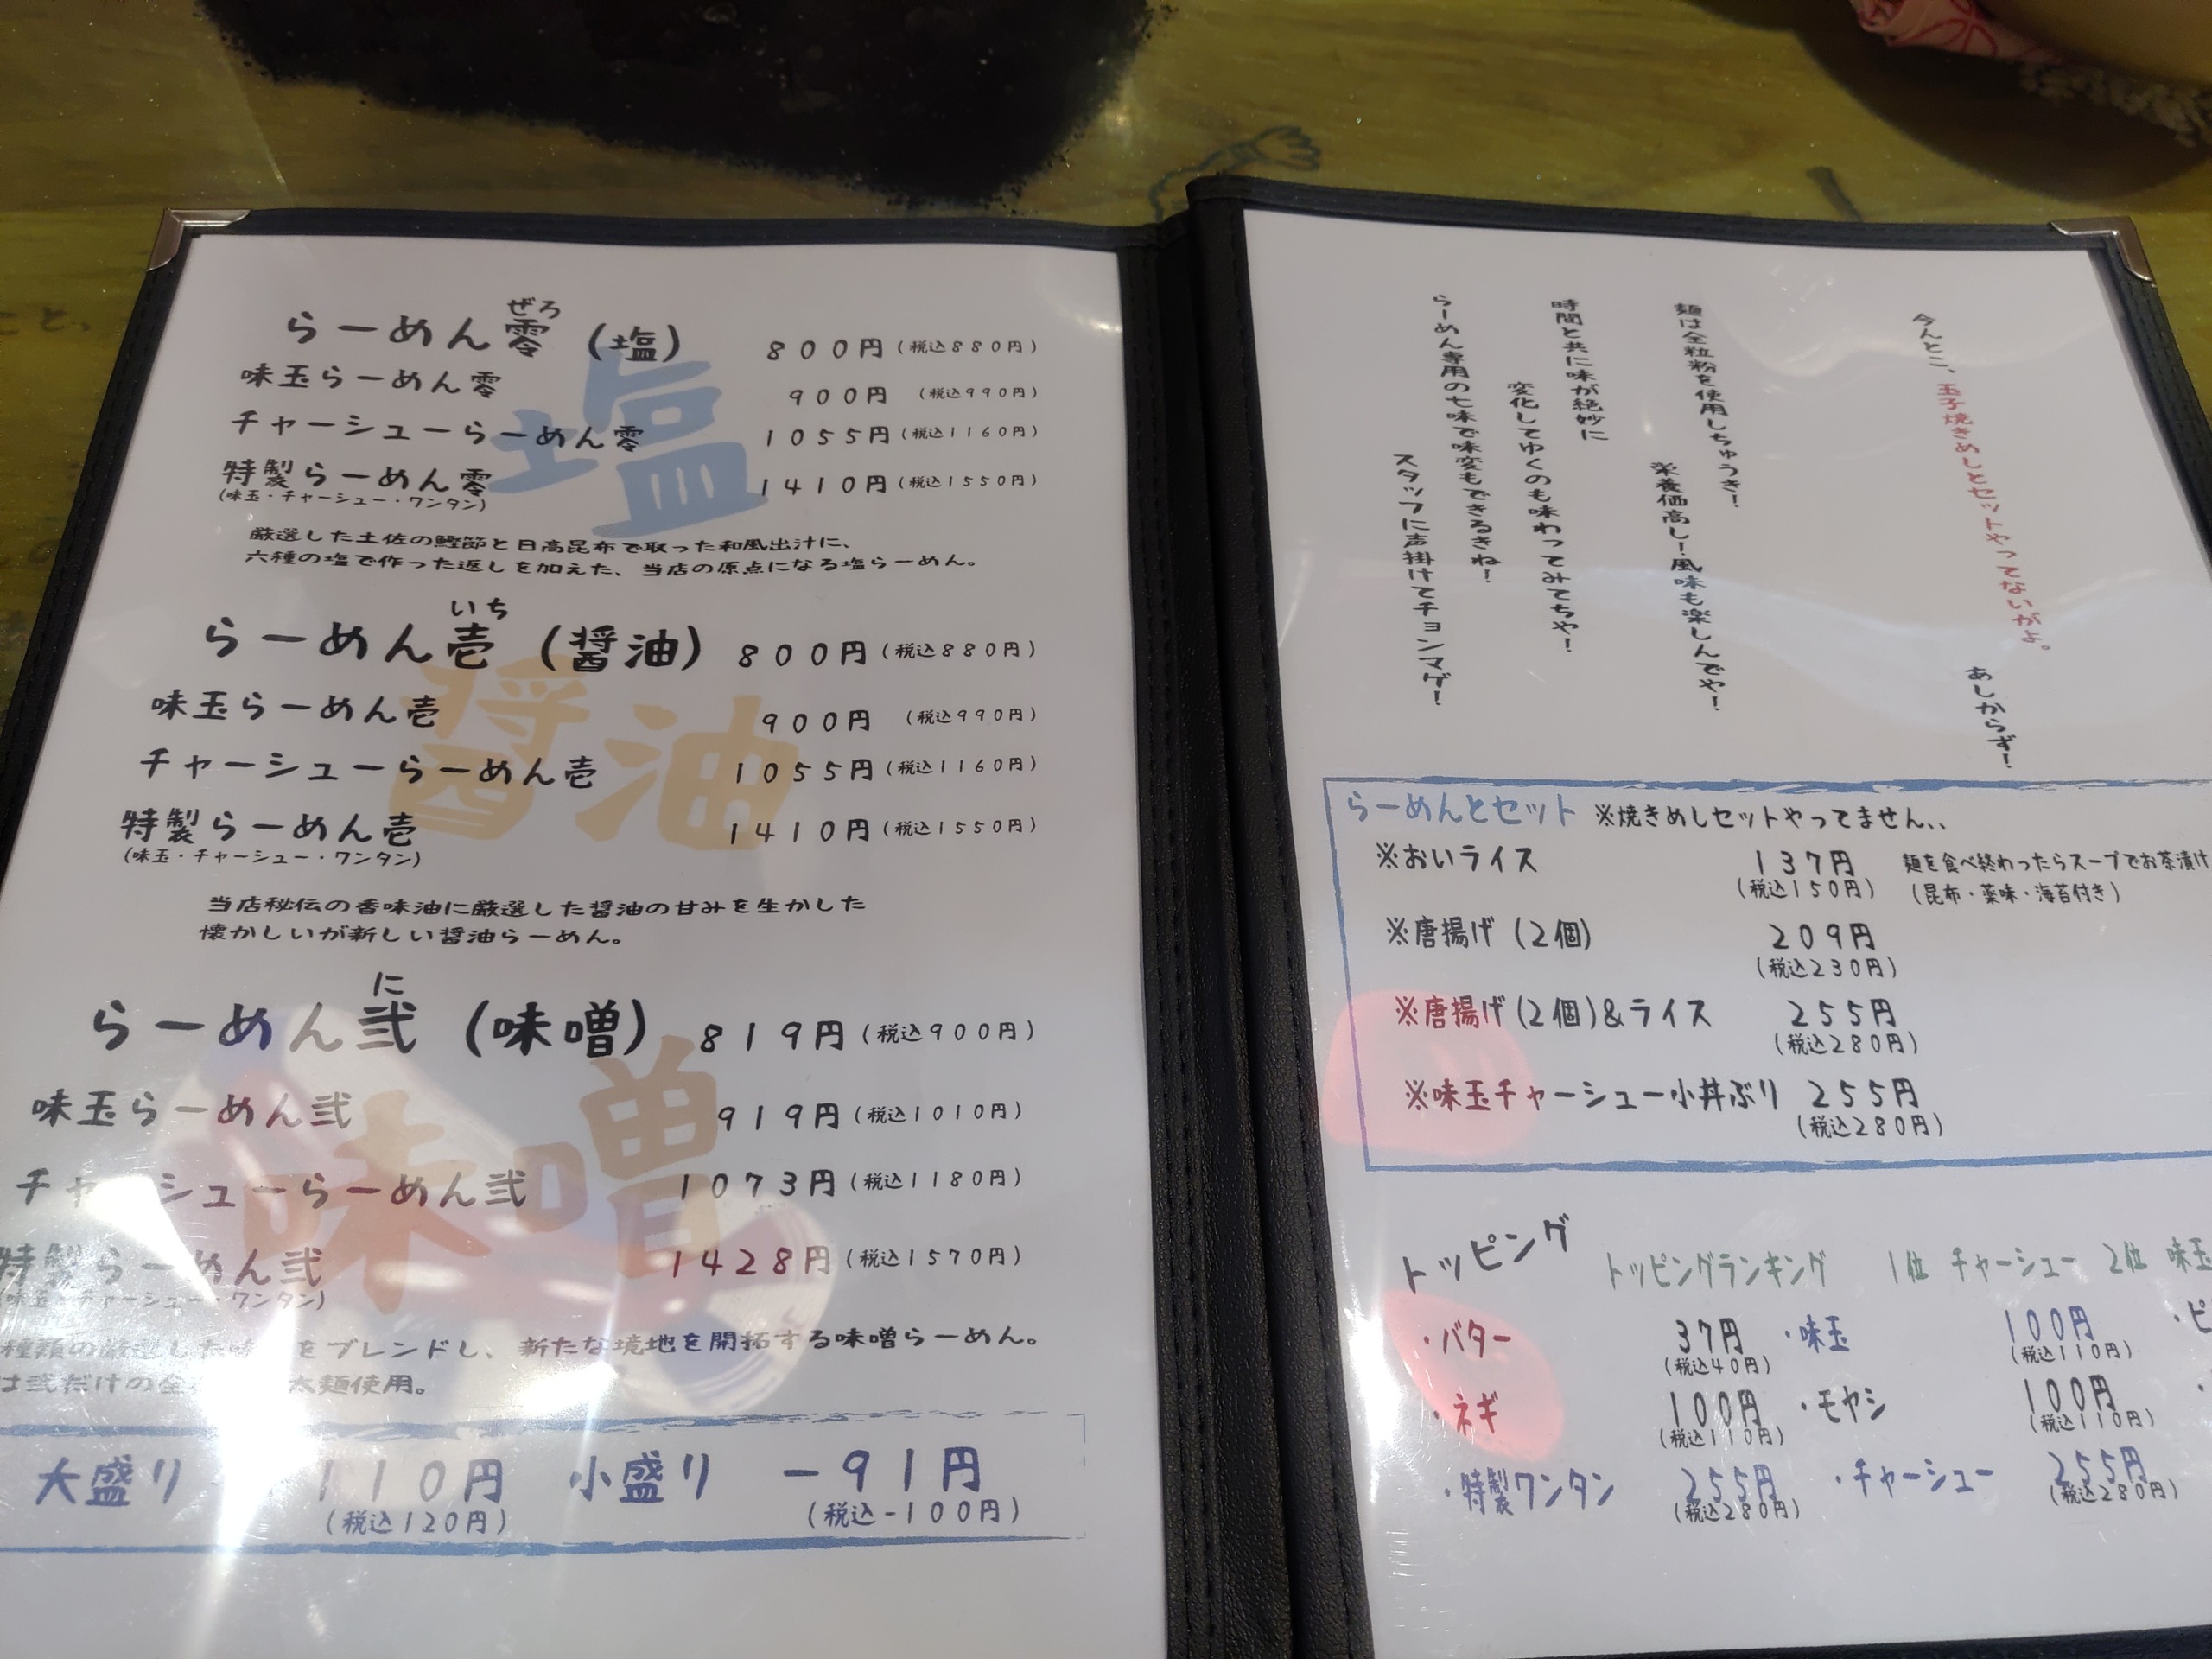 ぜろ
らーめん零(塩) 800円(税込880円)
味玉らーめん零 900円(税込990円)
チャーシューらーめん零 1055円(税込1160円)
特製らーめん零 1410円(税込1550円)
(味玉・チャーシュー・ワンタン)
塩
厳選した土佐の鰹節と日高昆布で取った和風出汁に、
六種の塩で作った返しを加えた、当店の原点になる塩らーめん。
いち
らーめん壱(醤油) 800円(税込880円)
味玉らーめん壱 900円(税込990円)
チャーシューらーめん壱 1055円(税込1160円)
特製らーめん壱 1410円(税込1550円)
(味玉・チャーシュー・ワンタン)
醤油
当店秘伝の香味油に厳選した醤油の甘みを生かした
懐かしいが新しい醤油らーめん。
に
らーめん弐(味噌) 819円(税込900円)
味玉らーめん弐 919円(税込1010円)
チャーシューらーめん弐 1073円(税込1180円)
特製らーめん弐 1428円(税込1570円)
(味玉・チャーシュー・ワンタン)
味噌
種類の厳選した味をブレンドし、新たな境地を開拓する味噌らーめん。
は弐だけの太麺使用。
大盛り 110円 小盛り -91円
(税込120円) (税込-100円)
今んとこ、玉子焼きめしとセットやってないがよ。
あしからず!
麺は全粒粉を使用しちゅうき!
栄養価高し!風味も楽しんでや!
時間と共に味が絶妙に
変化してゆくのも味わってみてちや!
らーめん専用の七味で味変もできるきね!
スタッフに声掛けてチョンマゲ!
らーめんとセット ※焼きめしセットやってません、、
※おいライス 137円 麺を食べ終わったらスープでお茶漬け
(税込150円) (昆布・薬味・海苔付き)
※唐揚げ(2個) 209円
(税込230円)
※唐揚げ(2個)&ライス 255円
(税込280円)
※味玉チャーシュー小丼ぶり 255円
(税込280円)
トッピング トッピングランキング 1位 チャーシュー 2位 味玉
・バター 37円 ・味玉 100円 ・ピ
(税込40円) (税込110円)
・ネギ 100円 ・モヤシ 100円 ・
(税込110円) (税込110円)
・特製ワンタン 255円 ・チャーシュー 255円
(税込280円) (税込280円)